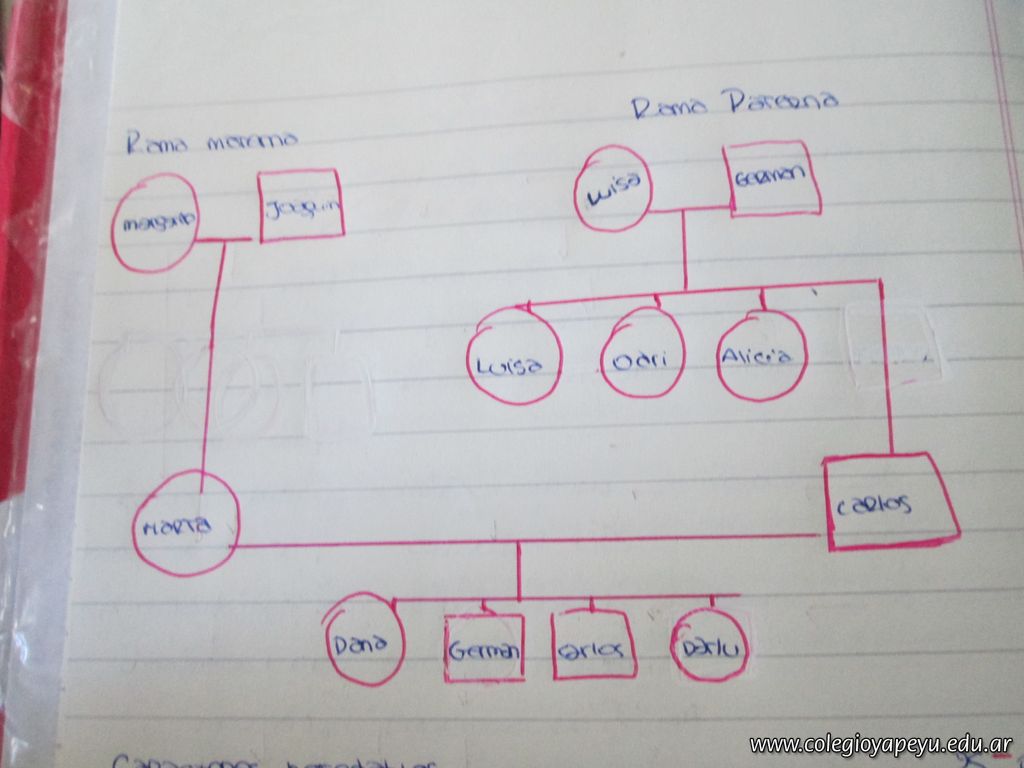 Rama materna
Rama Paterna
Margarita
Joaquin
Luisa
German
Luisa
Odri
Alicia
MARTA
CARLOS
Dana
German
Carlos
Darlu
www.colegioyapeyu.edu.ar